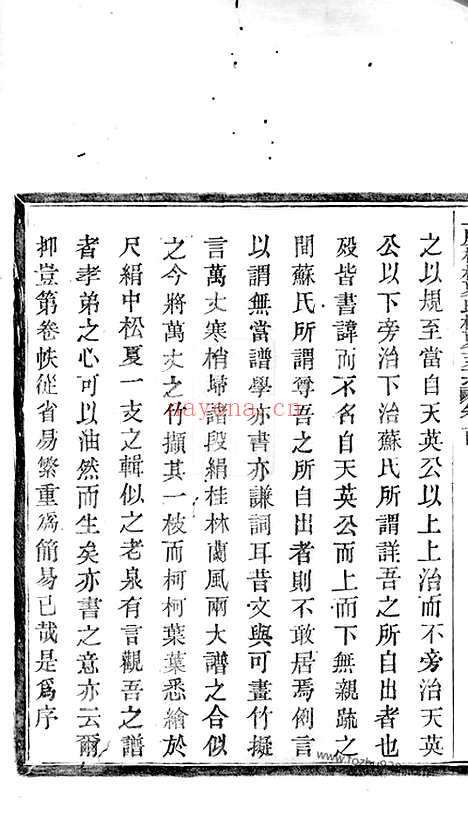 之以規至當自天英公以上上治而不旁治天英
公以下旁治下治蘇氏所謂詳吾之所自出者也
歿皆書諱而不名自天英公而上下無親疏之
間蘇氏所謂尊吾之所自出者則不敢居焉例言
以謂無當譜學亦書亦謙詞耳昔文與可畫竹擬
言萬丈寒梢掃諸段絹桂林蘭風兩大譜之合似
之今將萬丈之竹擷其一枝而柯柯葉葉悉繪於
尺絹中松夏一支之輯似之老泉有言觀吾之譜
者孝弟之心可以油然而生矣亦書之意亦云爾
抑豈第卷帙從省易繁重爲簡易已哉是爲序
yayanai.cn
www.fozhu920.com